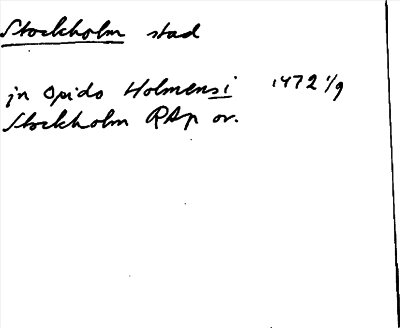 Stockholm stad
in opido Holmensi 1472 1/9
Stockholm RAp or.